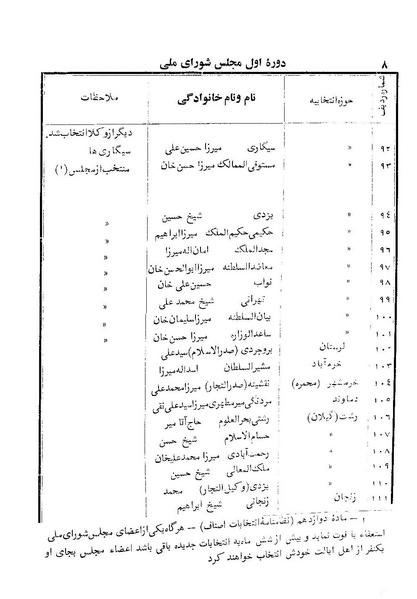 ۸ دورهٔ اول مجلس شورای ملی
شماره ردیف حوزه انتخابیه نام و نام خانوادگی ملاحظات
دیگر از وکلا انتخاب شد.
۹۲ " سیگاری میرزا حسین علی سیگاری ها
۹۳ " مستوفی الممالک میرزا حسن خان منتخب از مجلس (۱)
۹۴ " یزدی شیخ حسین "
۹۵ " حکیمی حکیم الملک میرزا ابراهیم "
۹۶ " مجد الملک امان اله میرزا "
۹۷ " معاضد السلطنه میرزا ابوالحسن خان "
۹۸ " نواب حسین علی خان "
۹۹ " تهرانی شیخ محمد علی "
۱۰۰ " بیان السلطنه میرزا سلیمان خان "
۱۰۱ " ساعد الوزاره میرزا حسن خان "
۱۰۲ لرستان بروجردی (صدرالاسلام) سید علی
۱۰۳ خرم آباد مشیر السلطان اسد اله میرزا
۱۰۴ خرمشهر (محمره) نقشینه (صدر التجار) میرزا محمد علی
۱۰۵ دماوند میر مطهری میرزا سید علی نقی
۱۰۶ رشت (گیلان) رشتی بحر العلوم حاج آقا میر
۱۰۷ " حسام الاسلام شیخ حسن
۱۰۸ " رحمت آبادی میرزا محمد علیخان
۱۰۹ " ملک المعالی شیخ حسین
۱۱۰ " یزدی (وکیل التجار) محمد
۱۱۱ زنجان زنجانی شیخ ابراهیم
۱ — مادهٔ دوازدهم (نظامنامهٔ انتخابات اصناف) — هرگاه یکی از اعضای مجلس شورای ملی
استعفاء یا فوت نماید و بیش از شش ماه به انتخابات جدیده باقی باشد اعضاء مجلس بجای او
یکنفر از اهل ایالت خودش انتخاب خواهند کرد